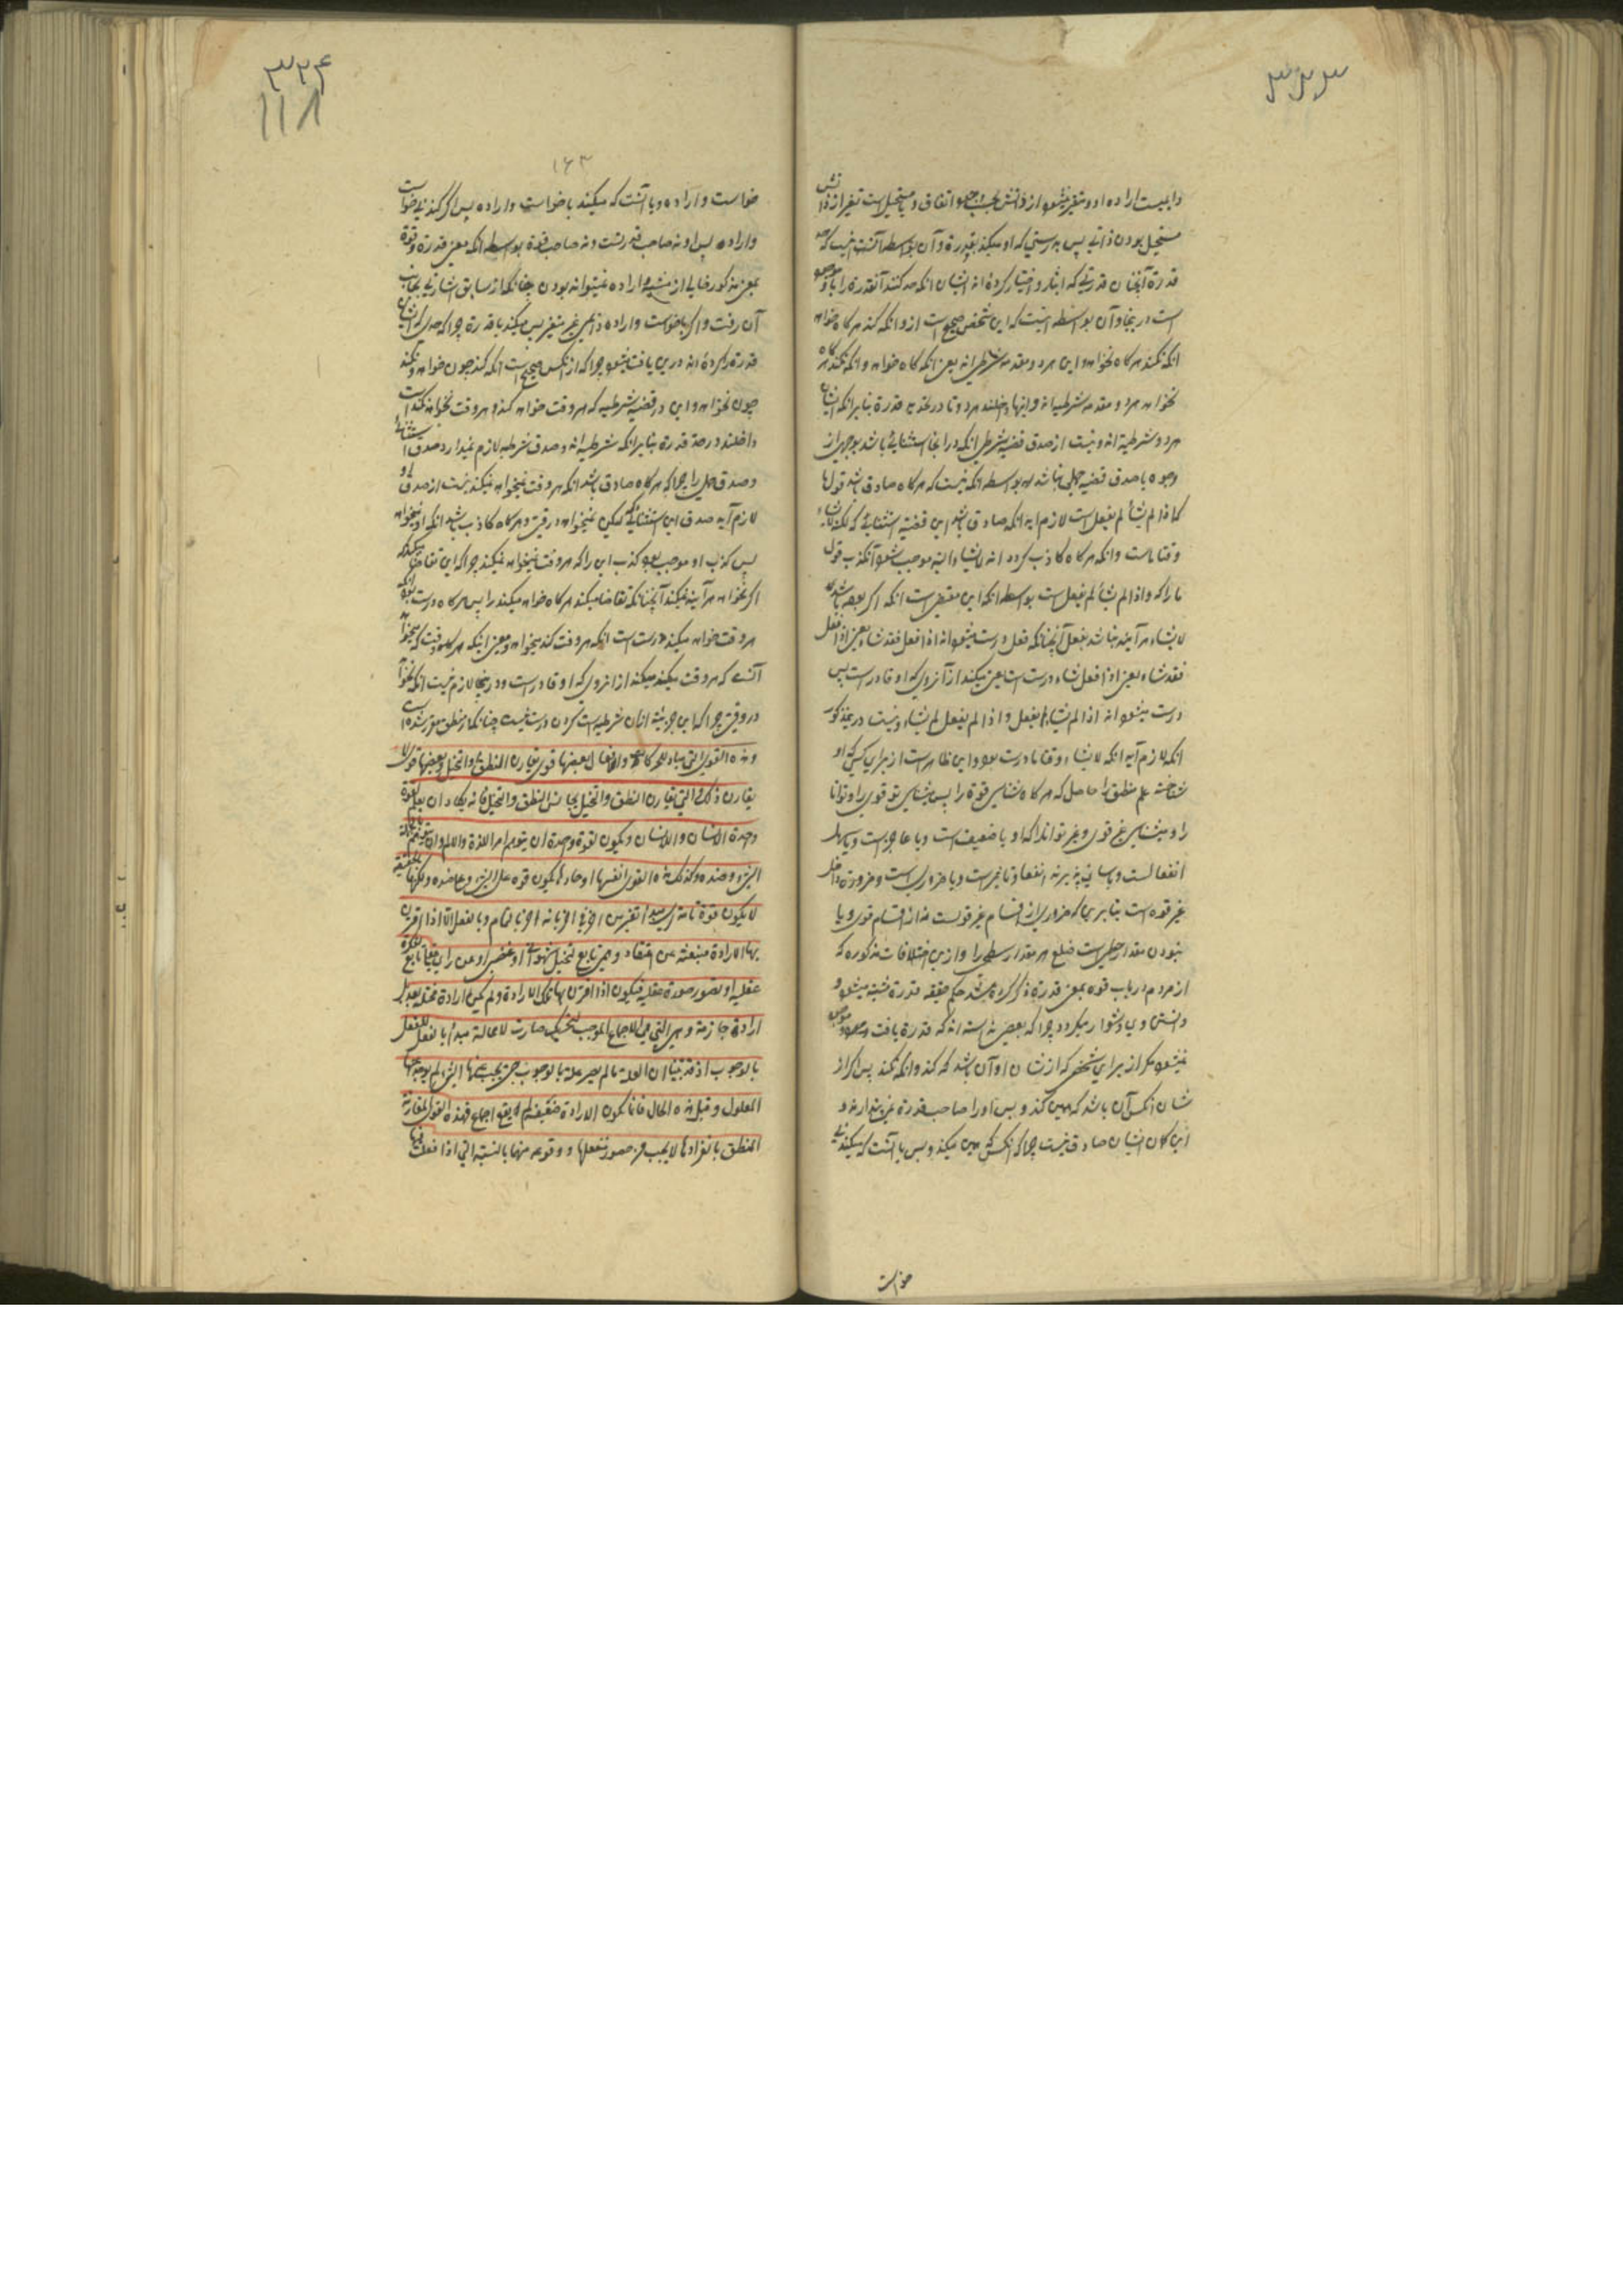 ۳۲۳
دایمیست اراده او و متغیر نمیشود از ذاتش بحسب وجود اتفاق و یا مستحیل است تغیر از ذاتش
مستحیل بودن ذاتی پس بدرستی که او میکند بقدرة و آن بواسطه آنست نیست که حد
قدرة آنچنان قدرتی که ایثار و اختیار کرده اند ایشان انکه حد کنند آنقدرة را باو موجود
است درینجا و آن بواسطه اینست که این شخص صحیح است ازو انکه کند هر کاه خواهد
انکه نکند هر کاه نخواهد و این هر دو مقدمه شرطی اند یعنی انکه کاه خواهد و انکه نکند هر کاه
نخواهد هر دو مقدمه شرطیه اند و اینها داخلند هر دو تا در تحدید قدرة بنابر انکه ایشان
هر دو شرطیه اند و نیست از صدق قضیه شرطی انکه در انجا استثنائی باشد بوجهی از
وجوه یا صدق قضیه حملی باشد بواسطه انکه نیست که هر کاه صادق باشد قول ما
که اذا لم یشأ لم یفعل است لازم آید انکه صادق باشد این قضیه استثنائی که لکنه لا یشاء
وقتا ماست و انکه هر کاه کاذب کردد انه لا یشاء البته موجب شود آنکذب قول
ما را که و اذا لم یشأ لم یفعل است بواسطه انکه این مقتضی است انکه اگر بوده باشد که
لا یشاء هر آینه نباشد یفعل آنچنانکه فعل درست میشود انه اذا فعل فقد شاء یعنی اذا فعل
فقد شاء یعنی اذا فعل شاء درست است یعنی میکند از آنروی که او قادر است پس
درست میشود انه اذا لم یشاء لم یفعل و اذا لم یفعل لم یشاء و نیست درین مذکور
انکه لازم آید انکه لا یشاء وقتا ما درست بود و این ظاهر است از برای کسی که او
شناخته علم منطق را حاصل که هر کاه شناسی قوة را پس میشناسی تو قوی را و توانا
را و میشناسی غیر قوی و غیر توانا که او یا ضعیف است و یا عاجز است و یا سهل
انفعالست و یا سانی پذیرنده انفعال و تاثیر است و یا ضروری است و ضرورة داخل
غیر قوه است بنابر یها که ضروری از اقسام غیر قویست نه از اقسام قوی و یا
نبودن مقدار خطی است ضلع هر مقدار سطحی را و ازین اختلافات مذکوره که
از مردم در باب قوه بمعنی قدرة ذکر کرده شد حکم حقیقه قدرة مشتبه میشود و
دانستن او یا دشوار میکردد چرا که بعضی دانسته اند که قدرة یافت و موجود
نمیشود مکر از برای شخصی که از شان او آن باشد که کند و انکه نکند پس اکر از
شان انکس آن باشد که همین کند و بس او را صاحب قدرة نمی پندارند و
این کمان ایشان صادق نیست چرا که انکس که همین میکند و بس یا آنست که میکند بی
خواست
۳۲۴
۱۱۸
۱۶۳
خواست و اراده و یا آنست که میکند با خواست و اراده پس اکر کند بی خواست
و اراده پس او نه صاحب قدرتست و نه صاحب قوة بواسطه انکه معنی قدرة و قوة
بمعنی مذکور خالی از مشیة و اراده نمیتواند بودن چنانکه از سابق اشارتی بجانب
آن رفت و اکر با خواست و اراده دایمی غیر متغیر پس میکند با قدرة چرا که حدی که ایشان
قدرة را کرده اند درین یافت میشود چرا که از انکس صحیح است انکه کند چون خواهد و نکند
چون نخواهد و این در قضیه شرطیه که هر وقت خواهد کند و هر وقت نخواهد نکند است
داخلند در حد قدرة بنابر انکه شرطیه اند و صدق شرطیه لازم نمیدارد صدق استثنائی
و صدق حملی را چرا که هر کاه صادق باشد انکه هر وقت نمیخواهد نمیکند نیست از صدق او
لازم آید صدق این استثنائی که لیکن نمیخواهد در وقتی و هر کاه کاذب باشد انکه او نمیخواهد
پس کذب او موجب بود کذب این را که هر وقت نمیخواهد نمیکند چرا که این تقاضا میکند که
اکر نخواهد هر آینه نمیکند آنچنانکه تقاضا میکند هر کاه خواهد میکند را پس هر کاه درست بود انکه
هر وقت خواهد میکند درست است انکه هر وقت کند میخواهد و معنی اینکه هر وقت که میخواهد
آنست که هر وقت میکند میکند از انروی که او قادر است و درینجا لازم نیست انکه نخواهد
در وقتی چرا که این جزئیه ازان شرطیه است کردن درست نیست چنانکه از منطق مقرر شده است
و هذه القوی التی مبادی للحرکات و الافعال بعضها قوی تقارن النطق و التخیل و بعضها قوی لا
یقارن ذلک و التی تقارن النطق و التخیل یجانس النطق و التخیل فانه یکاد ان یعلم بقوة
واحدة الانسان و اللاانسان و یکون لقوة واحدة ان یتوهم امر اللذة و الالم و ان یتوهم بالجملة
الشیء و ضده و کذلک هذه القوی انفسها او حادها یکون قوه علی الشیء و علی ضده و لکنها بالحقیقة
لا یکون قوة تامة ای مبدا تغیر من اخر فی اخر بانه اخر بالتمام و بالفعل الا اذا اقترن
بها الارادة منبعثة عن اعتقاد وهمی تابع لتخیل شهوانی او غضبی او عن رای عقلی تابع لفکرة
عقلیه او تصور صورة عقلیه فیکون اذا اقترن بها تلک الارادة و لم یکن ارادة ممیلة بعد بل
ارادة جازمة و هی التی هی الاجماع الموجب لتحریک صارت لا محالة مبدأ بالفعل للفعل
بالوجوب اذ قد بینا ان العلة ما لم یصر علة بالوجوب حتی یجب عنها الشیء لم یوجد عنها
المعلول و قبل هذه الحال فانما یکون الارادة ضعیفة لم یقع اجماع فهذه القوی المقارنة
للنطق بانفرادها لا یجب من حضور منفعلها و وقوعه منها بالنسبة التی اذا فعلت فیها